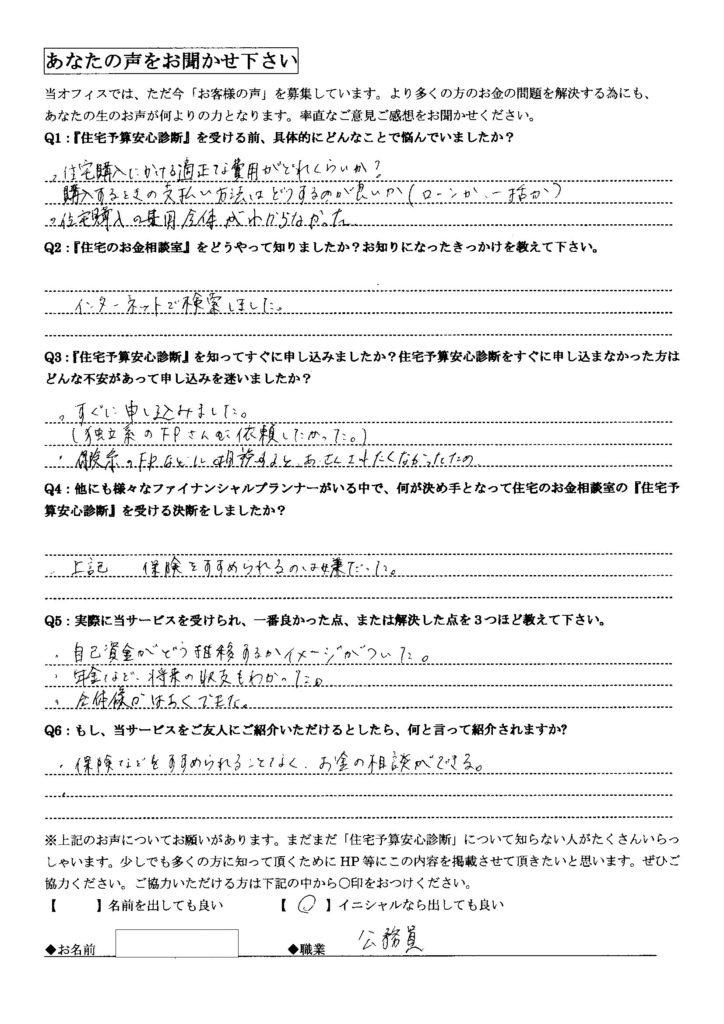 あなたの声をお聞かせ下さい
当オフィスでは、ただ今「お客様の声」を募集しています。より多くの方のお金の問題を解決する為にも、
あなたの生のお声が何よりの力となります。率直なご意見ご感想をお聞かせください。
Q1:『住宅予算安心診断』を受ける前、具体的にどんなことで悩んでいましたか?
。住宅購入にかける適正な費用がどれくらいか?
購入するときの支払い方法はどうするのが良いか(ローンか、一括か)
。住宅購入の費用全体がわからなかった
Q2:『住宅のお金相談室』をどうやって知りましたか?お知りになったきっかけを教えて下さい。
インターネットで検索しました。
Q3:『住宅予算安心診断』を知ってすぐに申し込みましたか?住宅予算安心診断をすぐに申し込まなかった方は
どんな不安があって申し込みを迷いましたか?
。すぐに申し込みました。
(独立系のFPさんに依頼したかった。)
・のFPなどに相談すると
Q4:他にも様々なファイナンシャルプランナーがいる中で、何が決め手となって住宅のお金相談室の『住宅予
算安心診断』を受ける決断をしましたか?
・上記 保険をすすめられるのは嫌だった。
Q5:実際に当サービスを受けられ、一番良かった点、または解決した点を3つほど教えて下さい。
・自己資金がどう推移するかイメージがついた。
・年金など、将来の収支もわかった。
・全体像がはあくできた。
Q6:もし、当サービスをご友人にご紹介いただけるとしたら、何と言って紹介されますか?
・保険などをすすめられることなく、お金の相談ができる。
※上記のお声についてお願いがあります。まだまだ「住宅予算安心診断」について知らない人がたくさんいらっ
しゃいます。少しでも多くの方に知って頂くためにHP等にこの内容を掲載させて頂きたいと思います。ぜひご
協力ください。ご協力いただける方は下記の中から〇印をおつけください。
【 】名前を出しても良い 【 〇 】イニシャルなら出しても良い
◆お名前 ◆職業 公務員